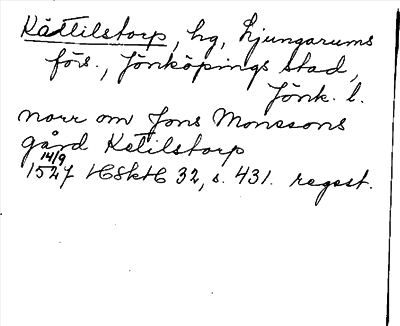 Kättilstorp, hg, Ljungarums
förs., Jönköpings stad,
Jönk. l.
norr om Jons Monssons
gård Ketilstorp
14/9
1527 HSkH 32, s. 431. regest.